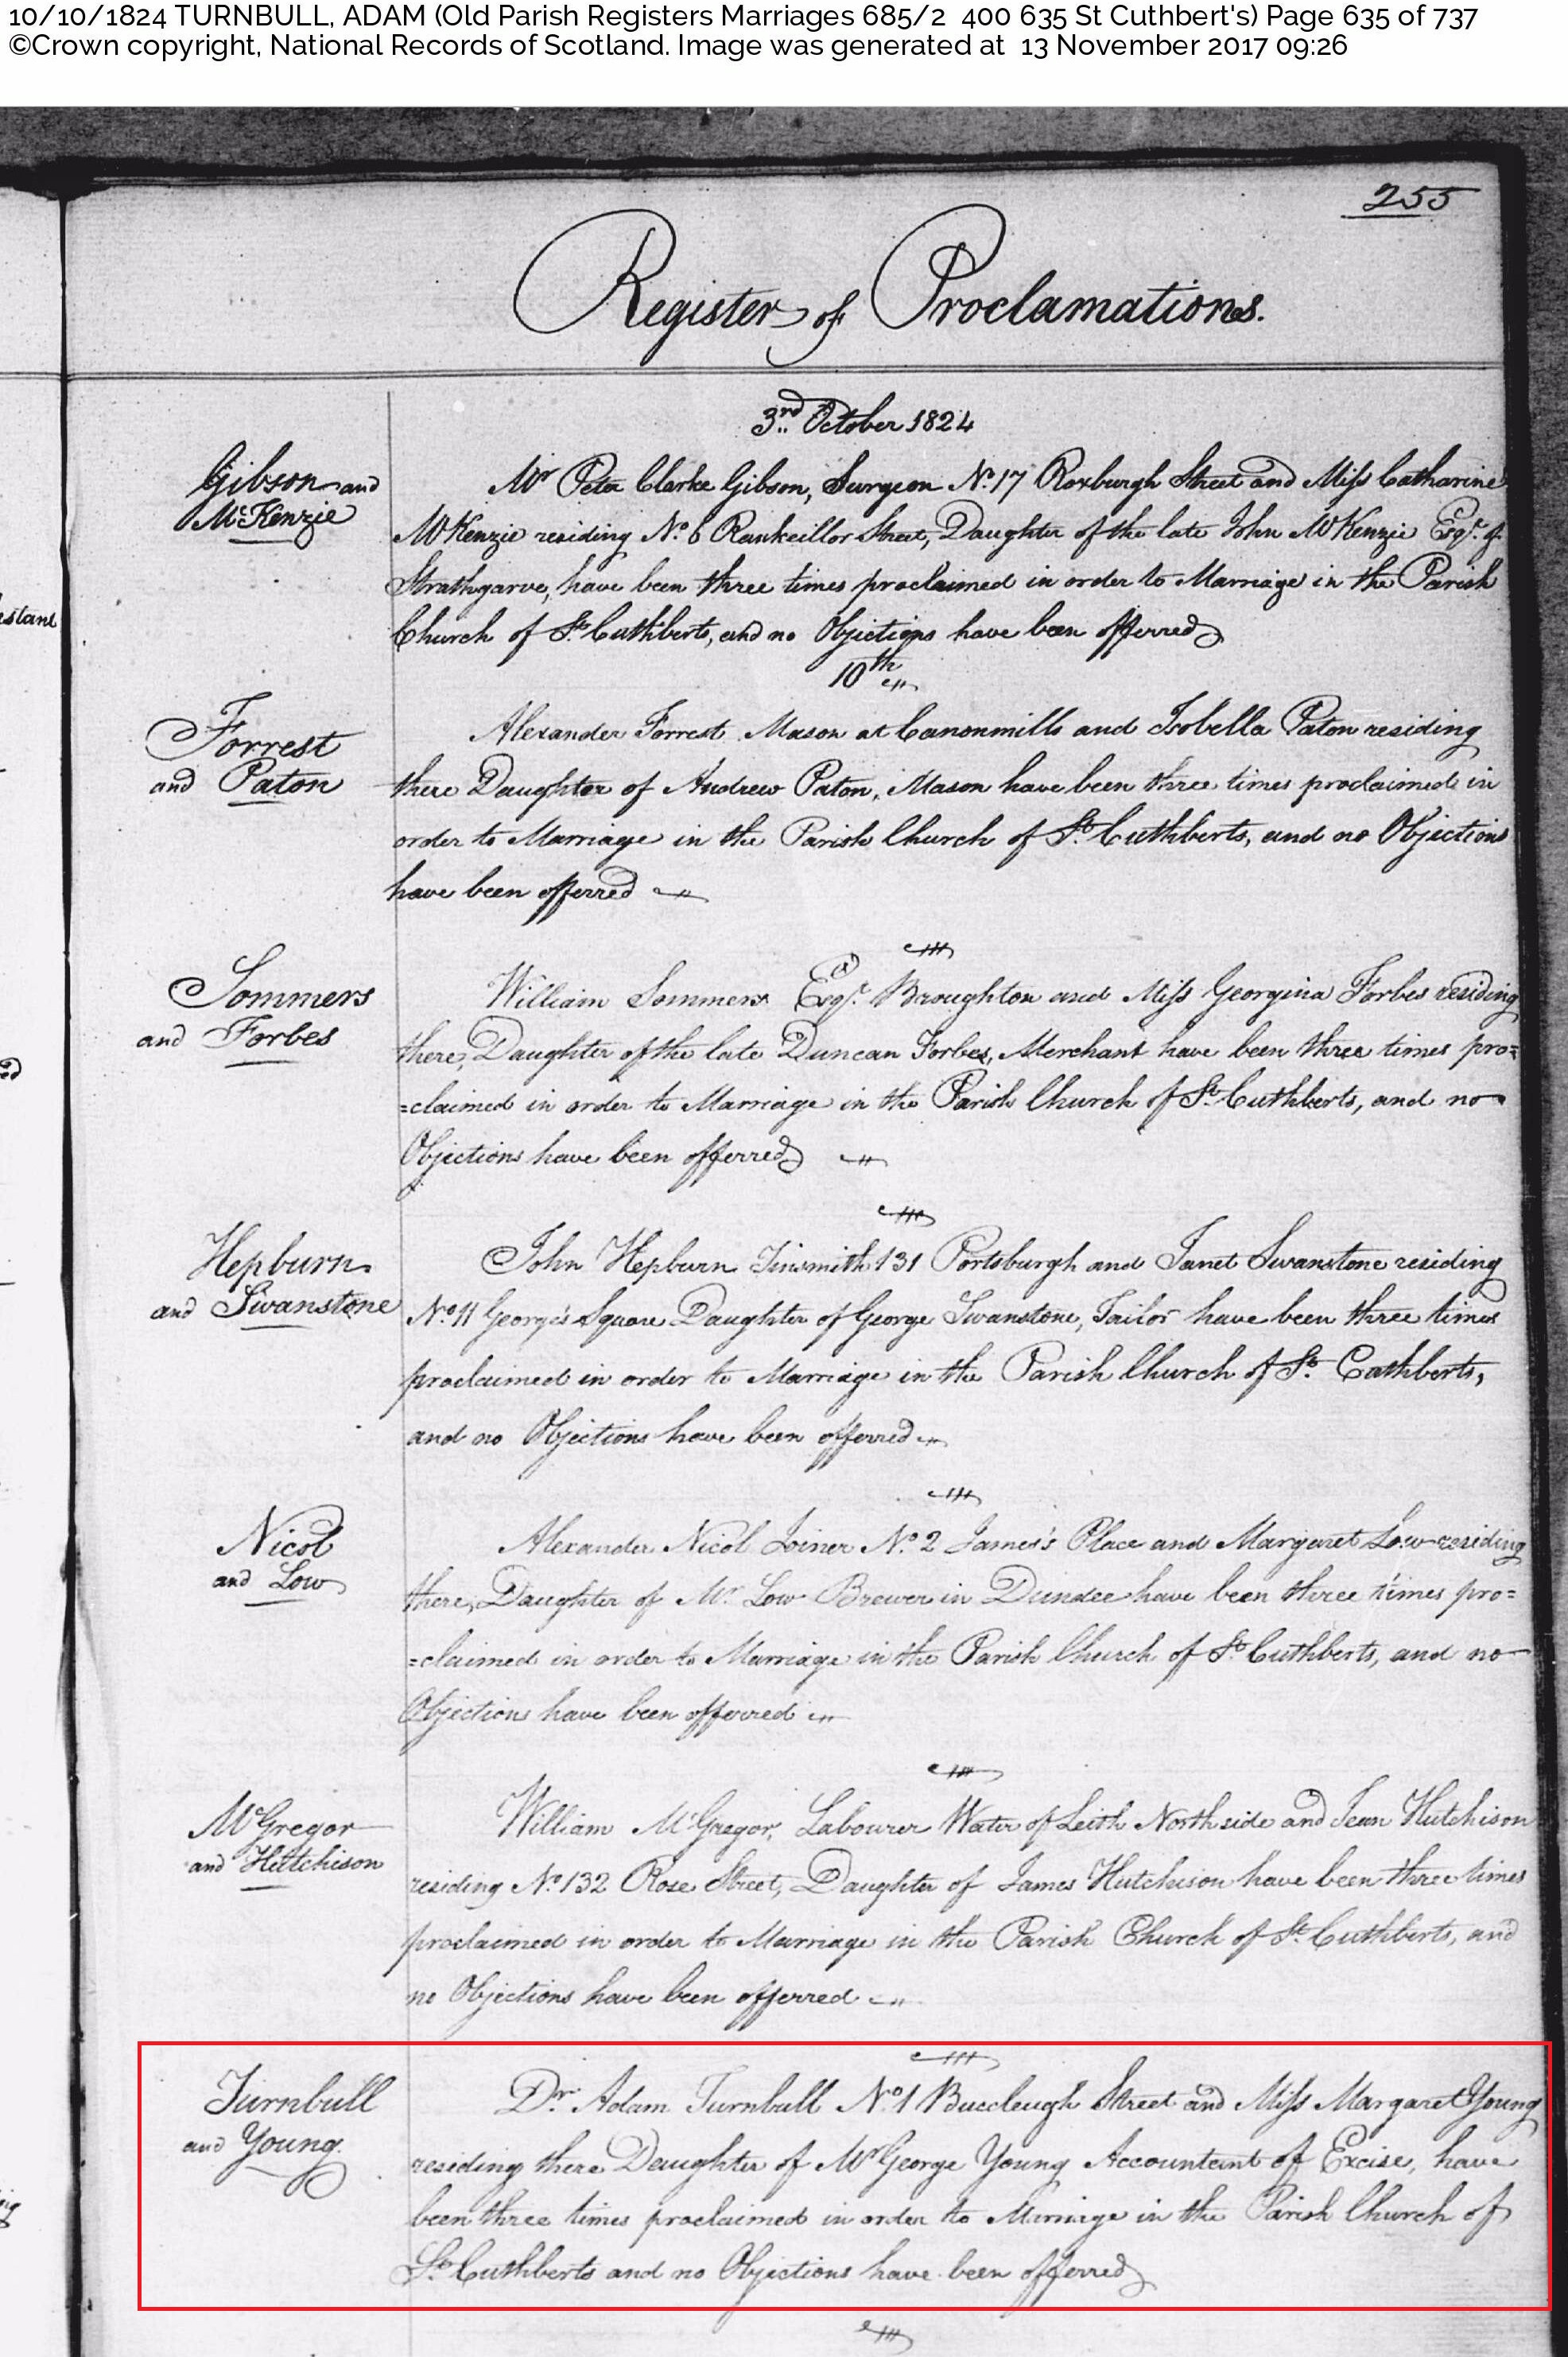 10/10/1824 TURNBULL, ADAM (Old Parish Registers Marriages 685/2 400 635 St Cuthbert's) Page 635 of 737
©Crown copyright, National Records of Scotland. Image was generated at 13 November 2017 09:26
255
Register of Proclamations.
3rd October 1824
Gibson and
McKenzie
Mr Peter Clarke Gibson, Surgeon No. 17 Roxburgh Street and Miss Catharine
McKenzie residing No. 6 Rankeillor Street, Daughter of the late John McKenzie Esqr. of
Strathgarve, have been three times proclaimed in order to Marriage in the Parish
Church of St. Cuthberts, and no Objections have been offerred
10th
Forrest
and Paton
Alexander Forrest Mason at Canonmills and Isobella Paton residing
there Daughter of Andrew Paton, Mason have been three times proclaimed in
order to Marriage in the Parish Church of St. Cuthberts, and no Objections
have been offerred
Sommers
and Forbes
William Sommers Esqr. Broughton and Miss Georgina Forbes residing
there, Daughter of the late Duncan Forbes, Merchant have been three times pro=
=claimed in order to Marriage in the Parish Church of St. Cuthberts, and no
Objections have been offerred
Hepburn
and Swanstone
John Hepburn Tinsmith 131 Portsburgh and Janet Swanstone residing
No. 11 George's Square Daughter of George Swanstone, Tailor have been three times
proclaimed in order to Marriage in the Parish Church of St. Cuthberts,
and no Objections have been offerred
Nicol
and Low
Alexander Nicol Joiner No. 2 James's Place and Margaret Low residing
there, Daughter of Mr. Low Brewer in Dundee have been three times pro=
=claimed in order to Marriage in the Parish Church of St. Cuthberts, and no
Objections have been offerred
McGregor
and Hutchison
William McGregor, Labourer Water of Leith North side and Jean Hutchison
residing No. 132 Rose Street, Daughter of James Hutchison have been three times
proclaimed in order to Marriage in the Parish Church of St. Cuthberts, and
no Objections have been offerred
Turnbull
and Young
Dr. Adam Turnbull No. 1 Buccleugh Street and Miss Margaret Young
residing there Daughter of Mr George Young Accountant of Excise, have
been three times proclaimed in order to Marriage in the Parish Church of
St. Cuthberts and no Objections have been offerred